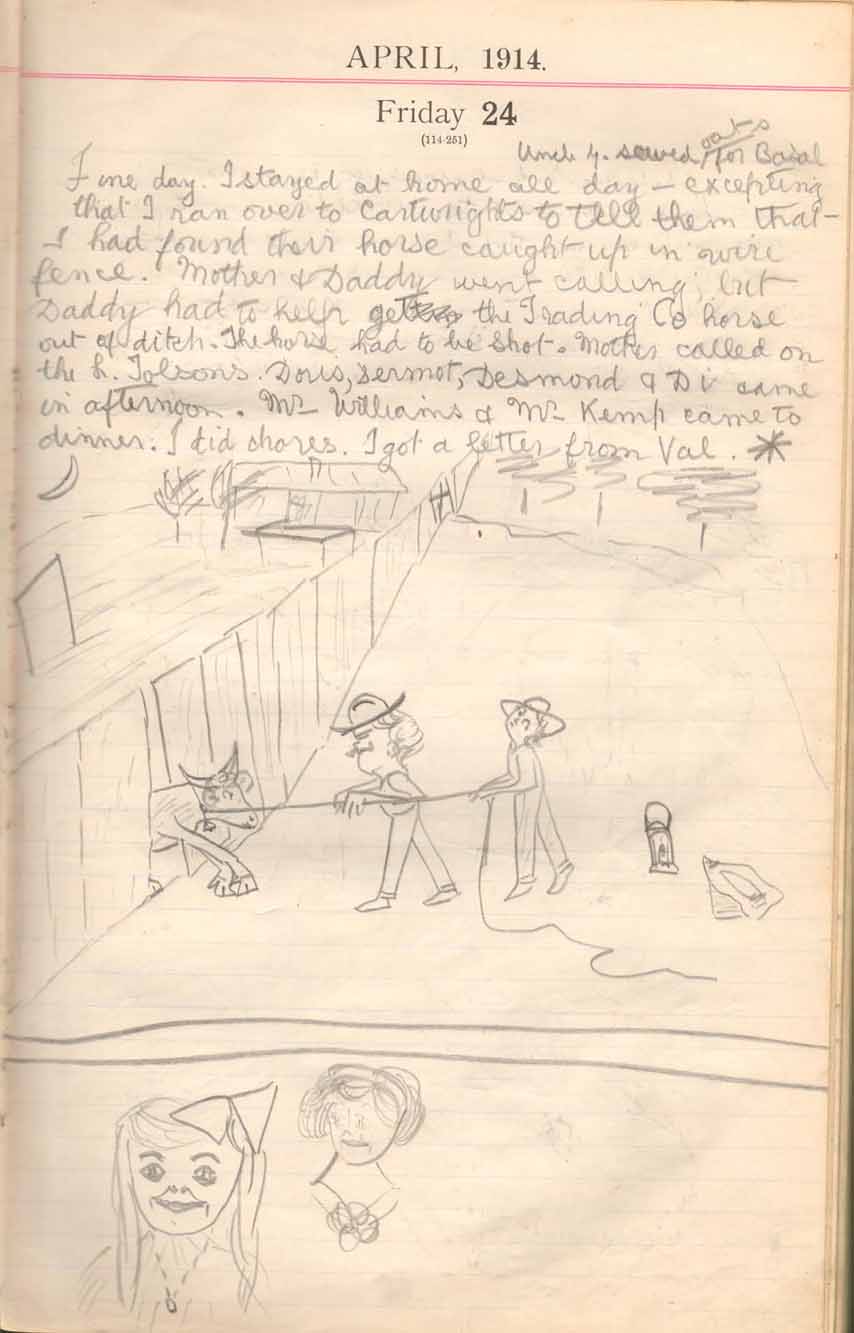 APRIL, 1914.
Friday 24
(114-251)
oats
Uncle Y. sowed for Basal
Fine day. I stayed at home all day – excepting
that I ran over to Cartwrights to tell them that
I had found their horse caught up in wire
fence. Mother & Daddy went calling, but
Daddy had to help get the Trading Co horse
out of ditch. The horse had to be shot. Mother called on
the h. Tolsons. Doris, Dermot, Desmond & Di came
in afternoon. Mr Williams & Mr Kemp came to
dinner. I did chores. I got a letter from Val. *